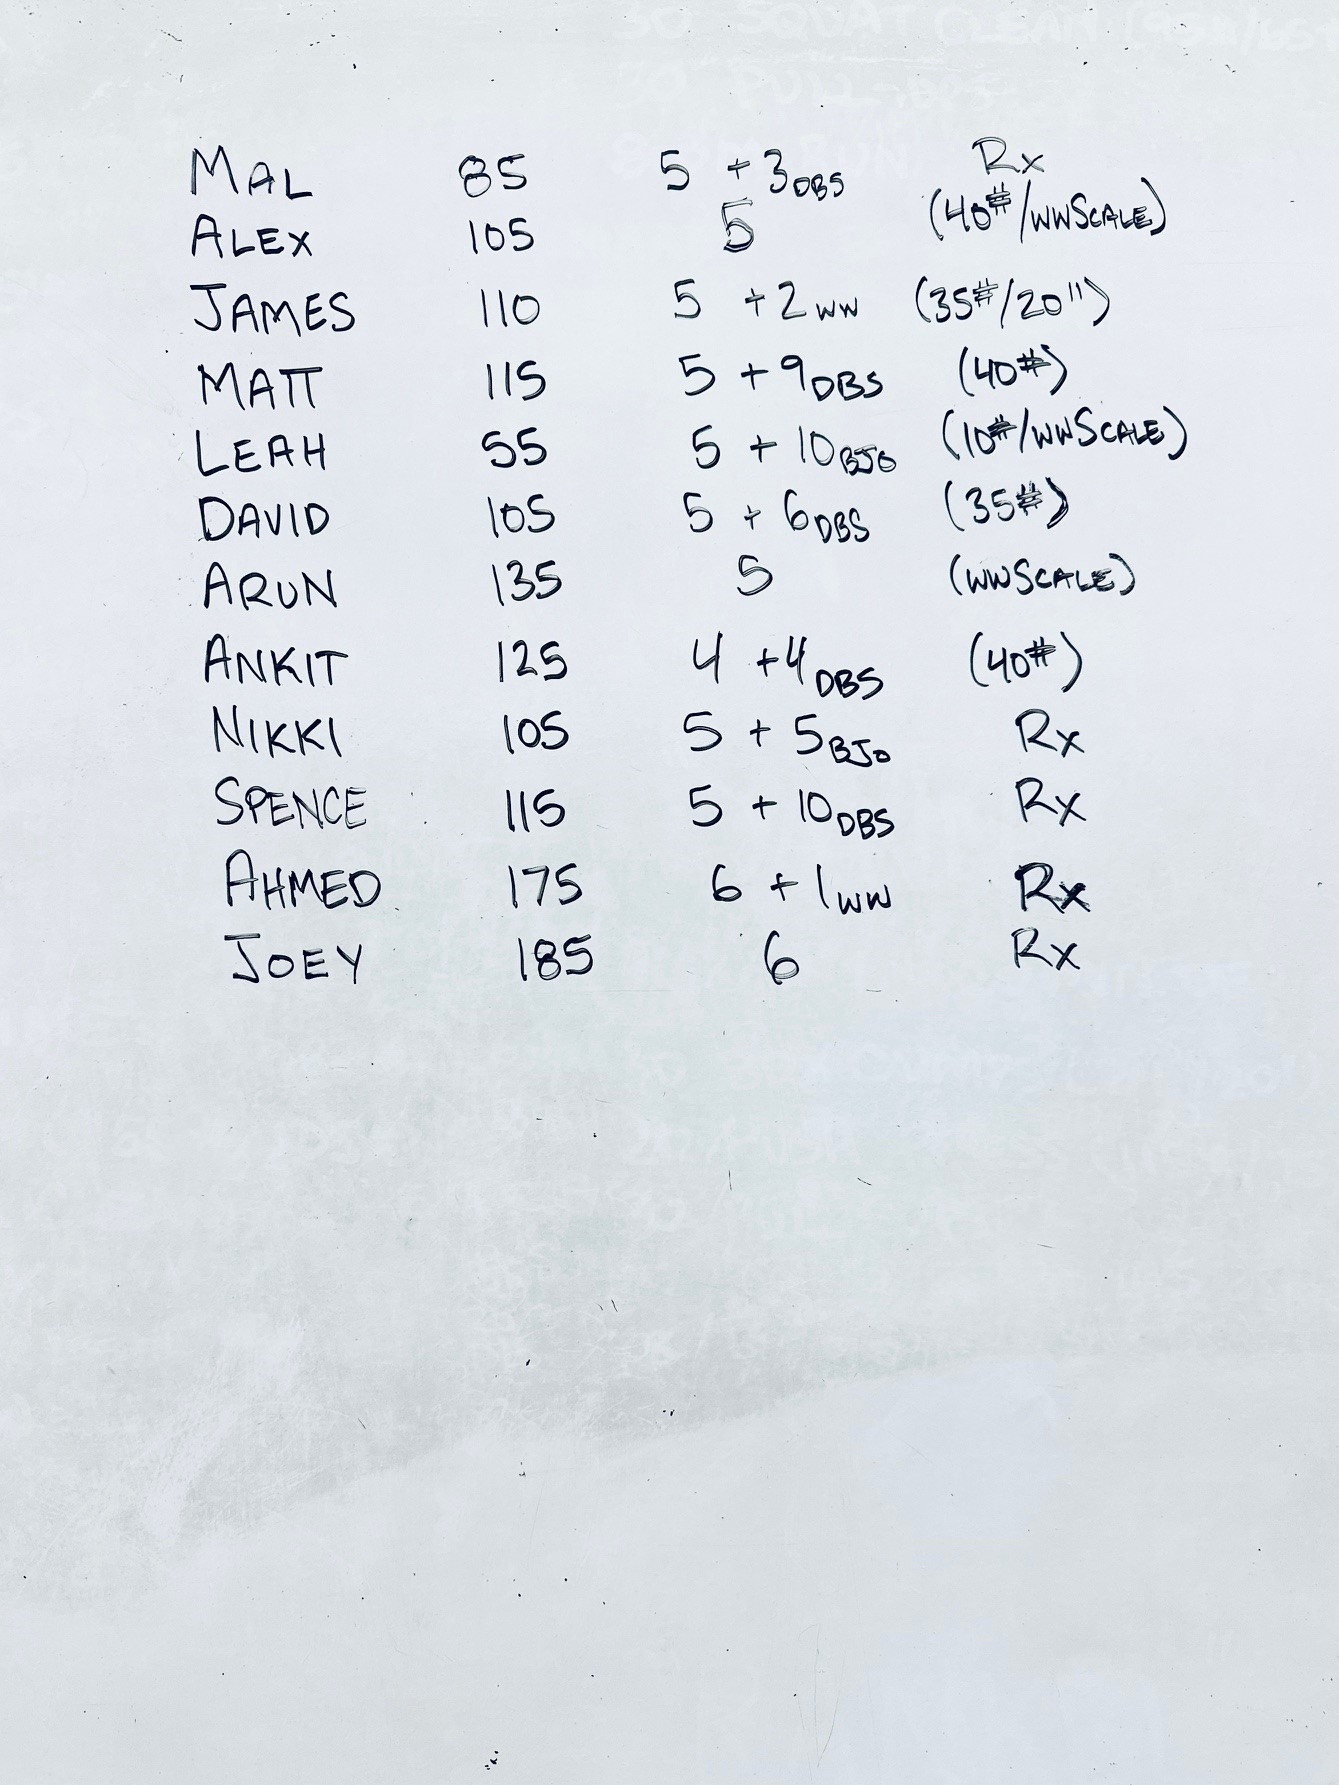 MAL 85 5 + 3 DBS Rx
ALEX 105 5 (40#/WWSCALE)
JAMES 110 5 + 2 WW (35#/20")
MATT 115 5 + 9 DBS (40#)
LEAH 55 5 + 10 BJO (10#/WWSCALE)
DAVID 105 5 + 6 DBS (35#)
ARUN 135 5 (WWSCALE)
ANKIT 125 4 + 4 DBS (40#)
NIKKI 105 5 + 5 BJO Rx
SPENCE 115 5 + 10 DBS Rx
AHMED 175 6 + 1 WW Rx
JOEY 185 6 Rx